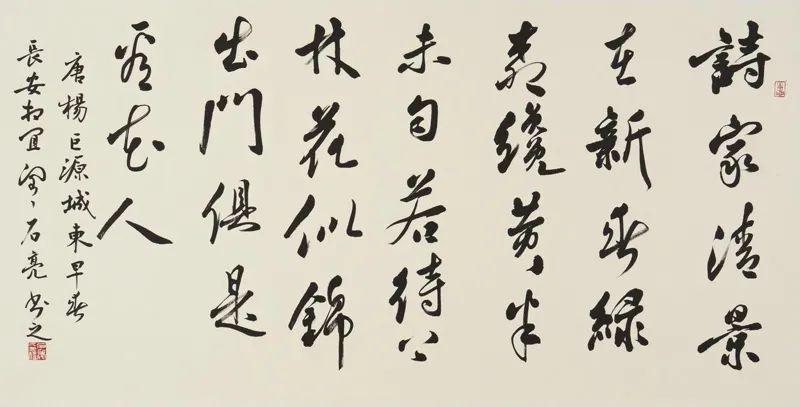 詩家清景
在新春綠
柳纔黃半
未勻若待上
林花似錦
出門俱是
看花人
唐楊巨源城東早春
長安石亮書之